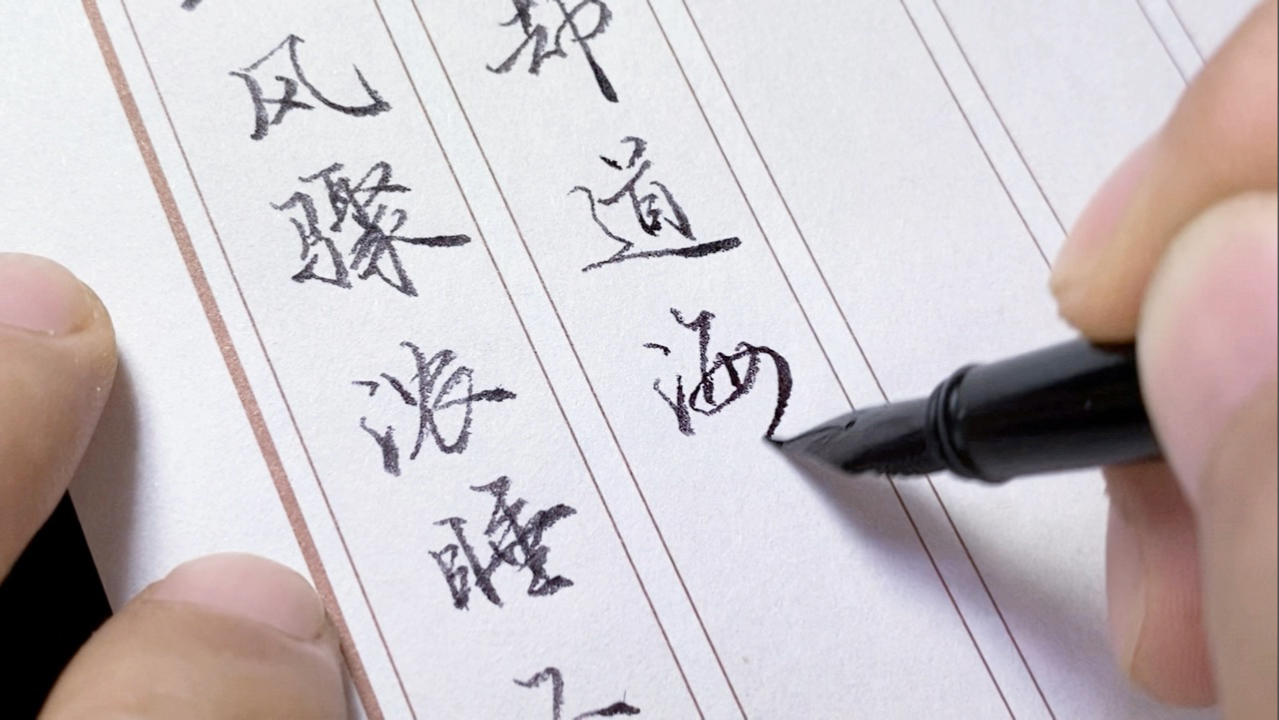 风骤浓睡不
却道海